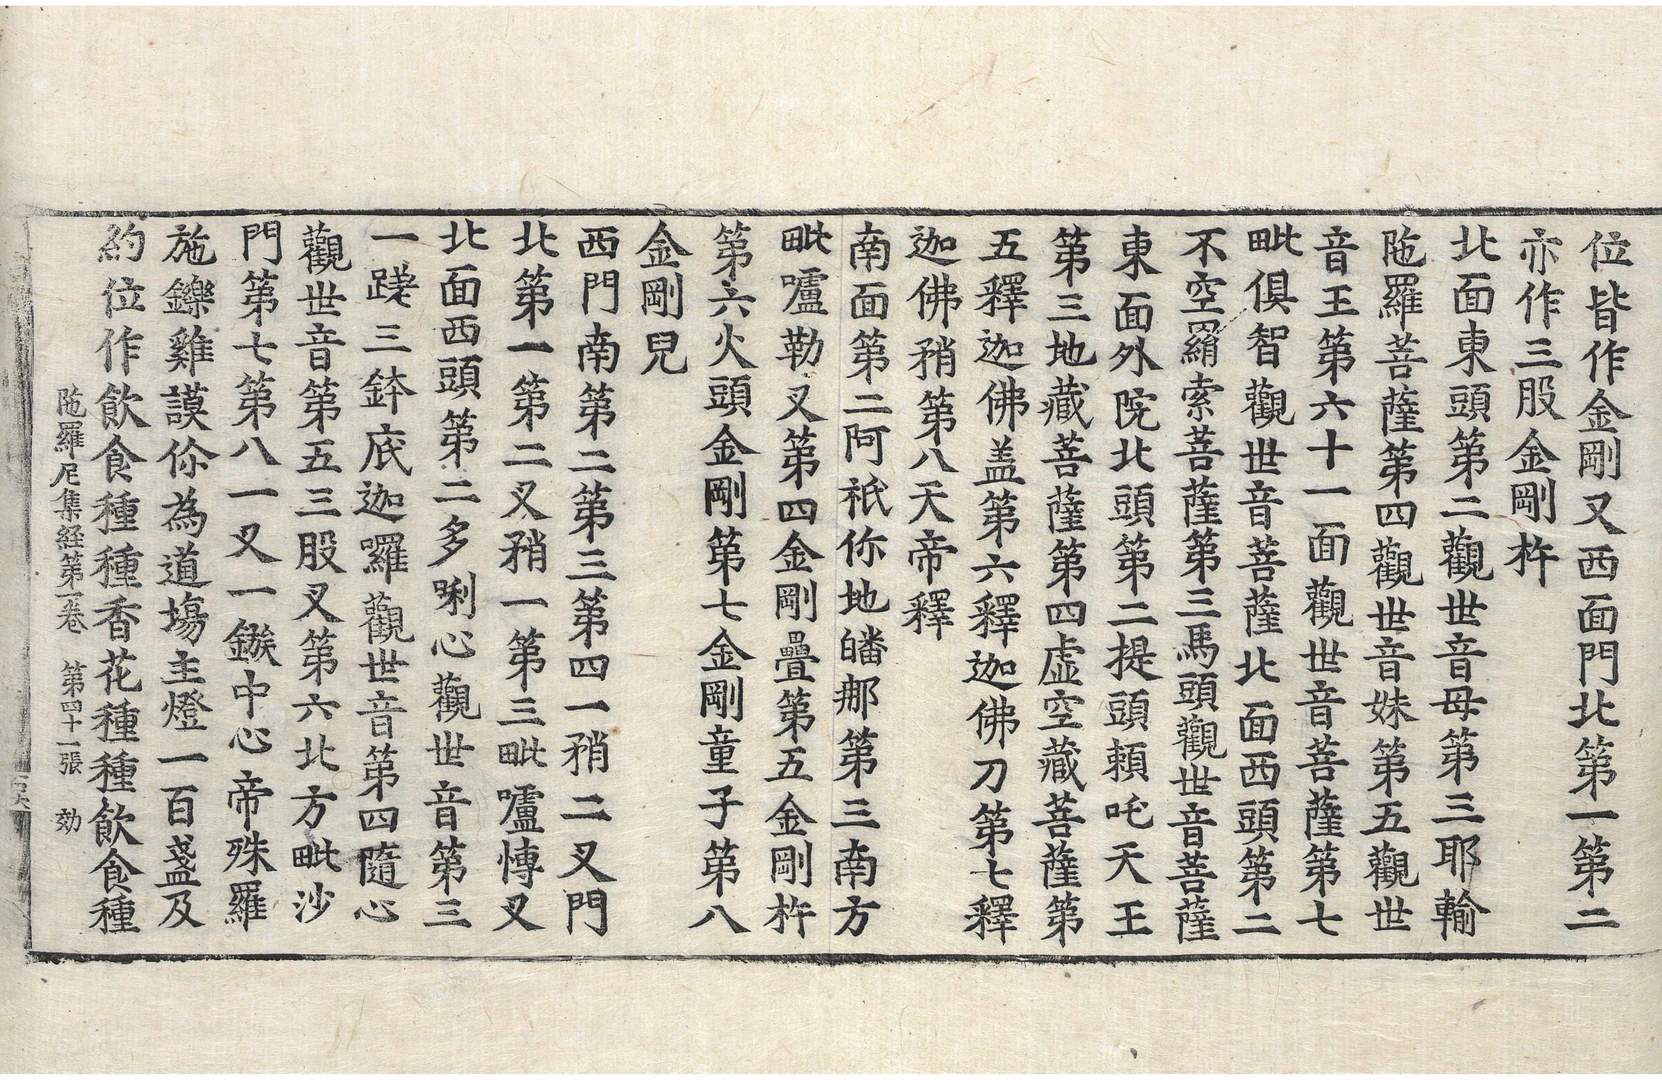 位皆作金剛叉西面門北第一第二
亦作三股金剛杵
北面東頭第二觀世音母第三耶輸
陁羅菩薩第四觀世音妹第五觀世
音王第六十一面觀世音菩薩第七
毗俱智觀世音菩薩北面西頭第二
不空羂索菩薩第三馬頭觀世音菩薩
東面外院北頭第二提頭頼吒天王
第三地藏菩薩第四虚空藏菩薩第
五釋迦佛盖第六釋迦佛刀第七釋
迦佛矟第八天帝釋
南面第二阿祇你地皤那第三南方
毗嚧勒叉第四金剛疊第五金剛杵
第六火頭金剛第七金剛童子第八
金剛兒
西門南第二第三第四一矟二叉門
北第一第二叉矟一第三毗嚧愽叉
北面西頭第二多唎心觀世音第三
一䟦三鉢底迦囉觀世音第四隨心
觀世音第五三股叉第六北方毗沙
門第七第八一叉一鏃中心帝殊羅
施鑠雞謨你為道塲主燈一百盞及
約位作飲食種種香花種種飲食種
陁羅尼集経第一卷 第四十一張 効